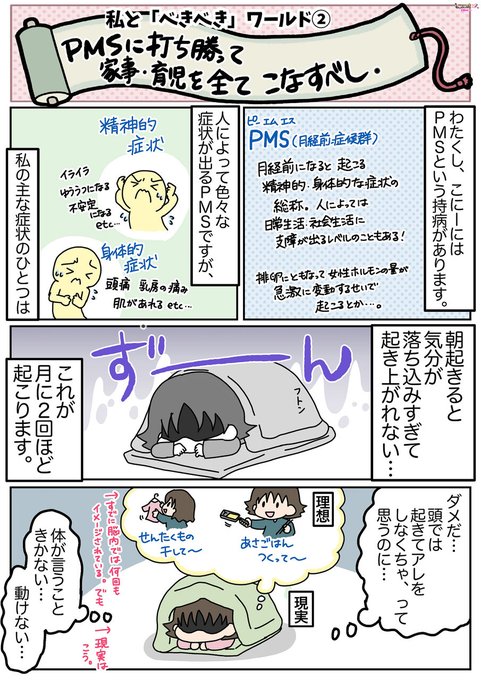 私と「べきべき」ワールド②
PMSに打ち勝って
家事・育児を全て こなすべし.
わたくし、こにーには
PMSという持病があります。
ピーエムエス
PMS(月経前症候群)
月経前になると 起こる
精神的・身体的な症状の
総称。人によっては
日常生活・社会生活に
支障が出るレベルのこともある!
排卵にともなって 女性ホルモンの量が
急激に変動するせいで
起こるとか…。
人によって色々な
症状が出るPMSですが、
精神的
症状
イライラ
ゆううつになる
不安定
になる
etc…
身体的
症状
頭痛 乳房の痛み
肌があれる etc…
私の主な症状のひとつは
朝起きると
気分が
落ち込みすぎて
起き上がれない…
ずーーん
フトン
これが
月に2回ほど
起こります。
ダメだ…
頭では
起きてアレを
しなくちゃ、って
思うのに…
理想
あさごはん
つくって〜
せんたくもの
干して〜
→すでに脳内では何回も
イメージされている。でも
→現実は
こう。
現実
体が言うこと
きかない…
動けない…